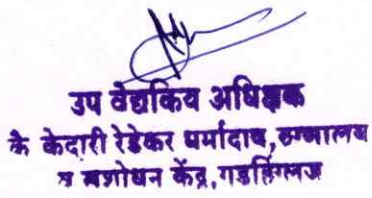 उप वेद्यकिय अधिक्षक
कै केदारी रेडेकर धर्मादाय, रुग्णालय
व संशोधन केंद्र, गडहिंग्लज